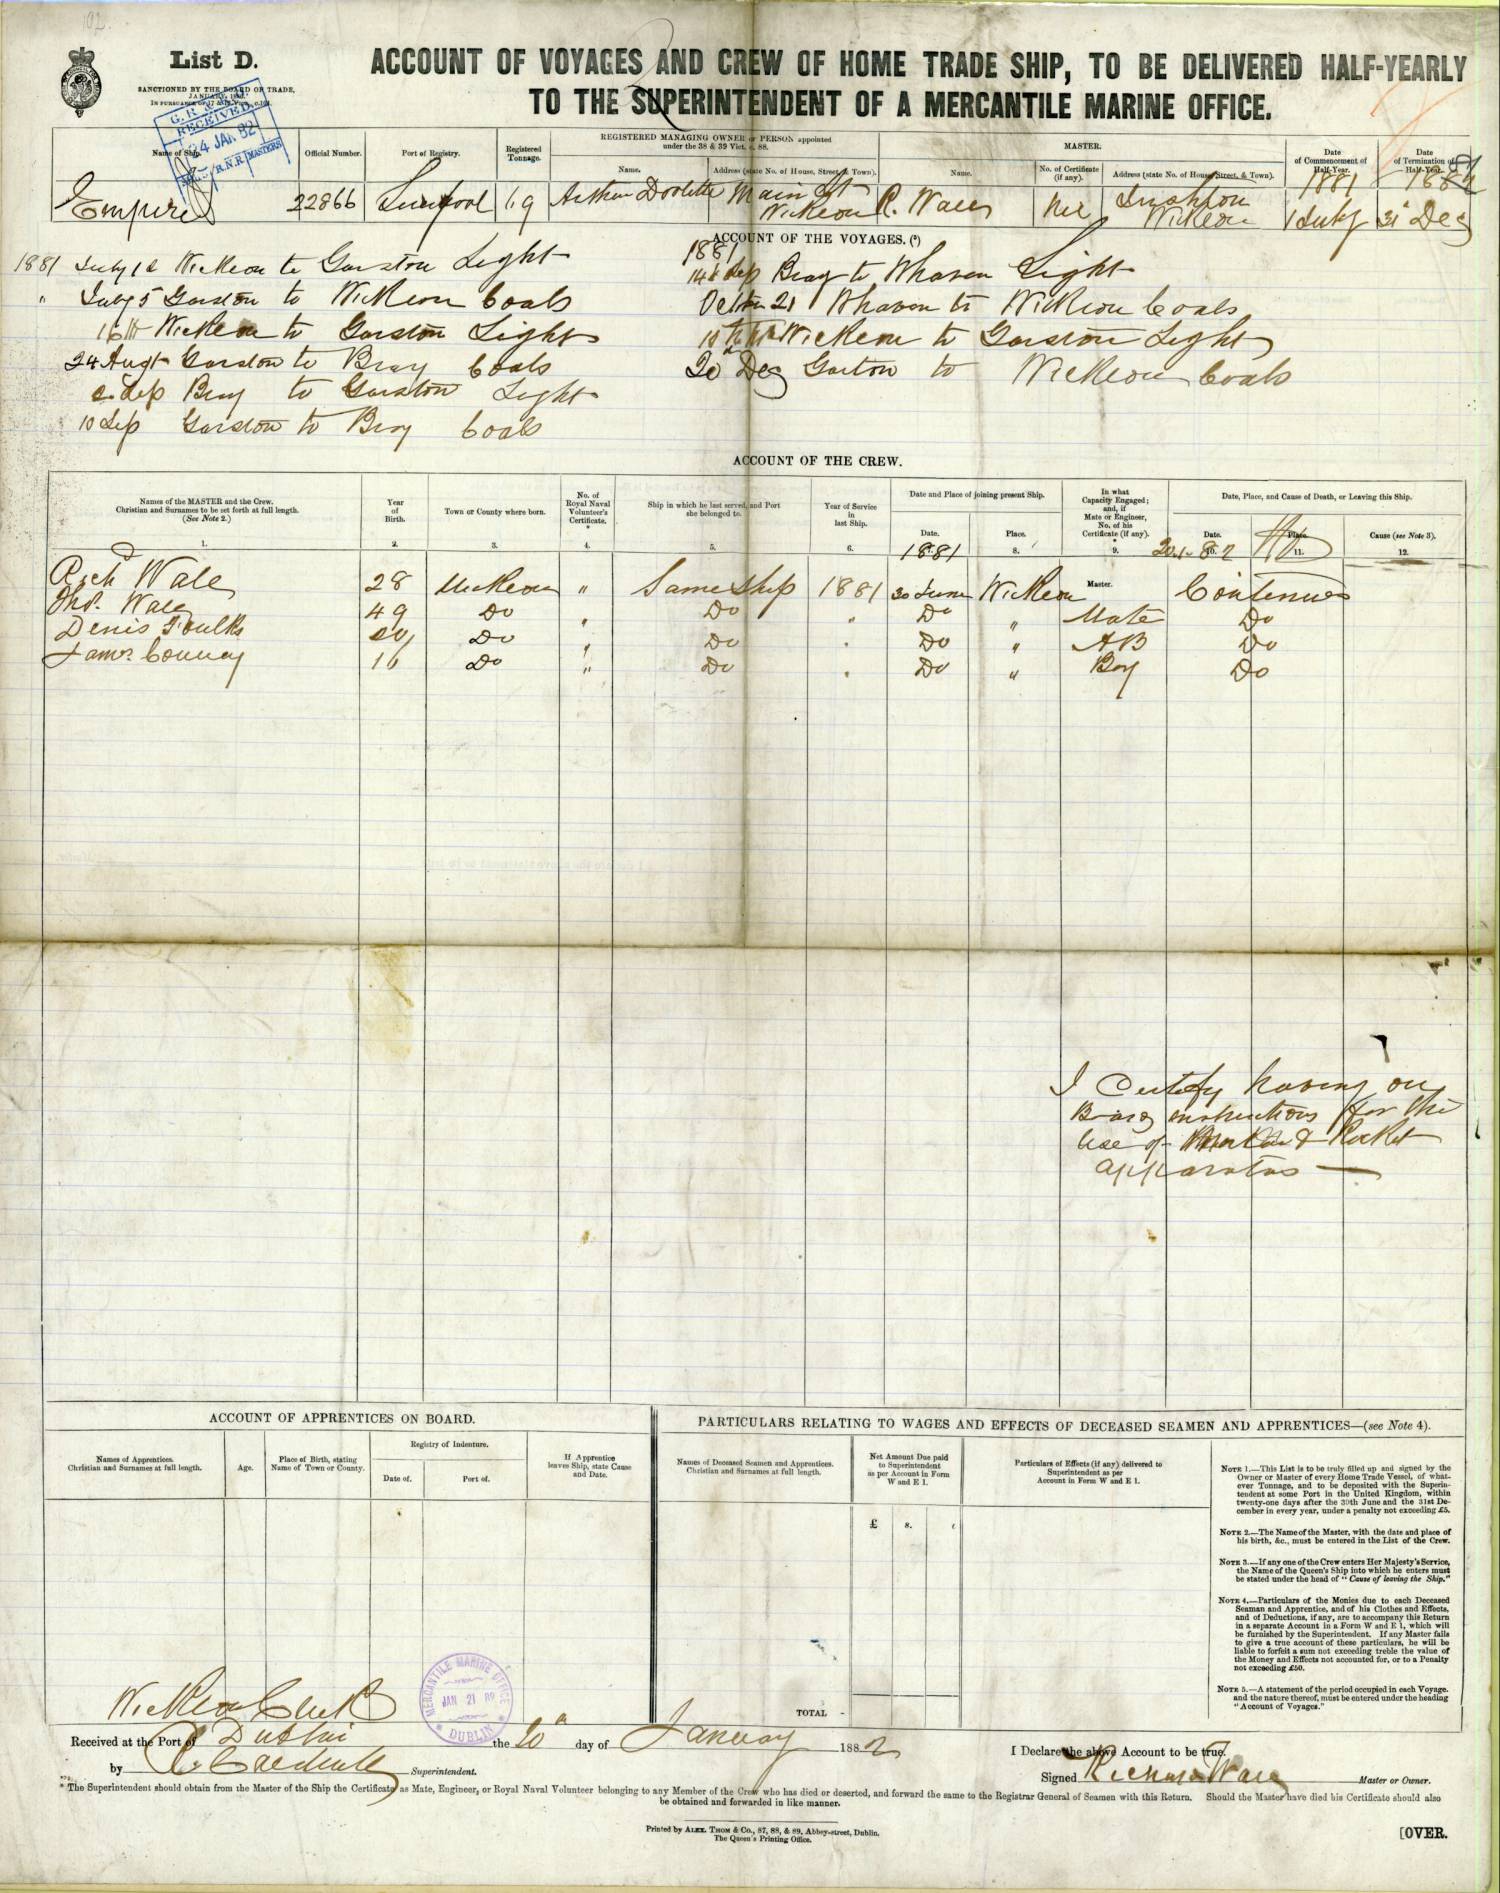 102
List D.
SANCTIONED BY THE BOARD OF TRADE,
ACCOUNT OF VOYAGES AND CREW OF HOME TRADE SHIP, TO BE DELIVERED HALF-YEARLY
TO THE SUPERINTENDENT OF A MERCANTILE MARINE OFFICE.
RECEIVED
24 JAN. 82
R.N.R. MASTERS
Name of Ship.
Official Number.
Port of Registry.
Registered Tonnage.
REGISTERED MANAGING OWNER or PERSON appointed
under the 38 & 39 Vict. c. 88.
Name.
Address (state No. of House, Street, & Town).
MASTER.
Name.
No. of Certificate (if any).
Address (state No. of House, Street, & Town).
Date of Commencement of Half-Year.
Date of Termination of Half-Year.
Empire
22866
Liverpool
69
Arthur Doolette
Main St
Wicklow
R. Wale
Nil
Wicklow
1881
1 July
31 Dec
ACCOUNT OF THE VOYAGES.(*)
1881 July 1st Wicklow to Garston Light
" July 5 Garston to Wicklow Coals
16th Wicklow to Garston Light
24 Augt Garston to Bray Coals
Sep Bray to Garston Light
10 Sep Garston to Bray Coals
1881
14th Sep Bray to Whaven Light
21 Whaven to Wicklow Coals
Wicklow to Garston Light
20 Dec Garston to Wicklow Coals
ACCOUNT OF THE CREW.
Names of the MASTER and the Crew.
Christian and Surnames to be set forth at full length.
(See Note 2.)
1.
Year of Birth.
2.
Town or County where born.
3.
No. of Royal Naval Volunteer's Certificate.
*
4.
Ship in which he last served, and Port she belonged to.
5.
Year of Service in last Ship.
6.
Date and Place of joining present Ship.
Date.
Place.
8.
In what Capacity Engaged; and, if Mate or Engineer, No. of his Certificate (if any).
*
9.
Date, Place, and Cause of Death, or Leaving this Ship.
Date.
10.
Place.
11.
Cause (see Note 3).
12.
1881
20-1-82
Rich Wale 28 Wicklow " Same ship 1881 30 June Wicklow Master. Continues
Thos. Wale 49 Do " Do " Do " Mate Do
Denis Foulks Do " Do " Do " AB Do
James Conway 16 Do " Do " Do " Boy Do
I Certify having on
Board instructions for the
Use of Mortar & Rocket
apparatus —
ACCOUNT OF APPRENTICES ON BOARD.
Names of Apprentices.
Christian and Surnames at full length.
Age.
Place of Birth, stating Name of Town or County.
Registry of Indenture.
Date of.
Port of.
If Apprentice leaves Ship, state Cause and Date.
PARTICULARS RELATING TO WAGES AND EFFECTS OF DECEASED SEAMEN AND APPRENTICES—(see Note 4).
Names of Deceased Seamen and Apprentices.
Christian and Surnames at full length.
Net Amount Due paid to Superintendent as per Account in Form W and E 1.
£ s.
Particulars of Effects (if any) delivered to Superintendent as per Account in Form W and E 1.
TOTAL -
NOTE 1.—This List is to be truly filled up and signed by the
Owner or Master of every Home Trade Vessel, of what-
ever Tonnage, and to be deposited with the Superin-
tendent at some Port in the United Kingdom, within
twenty-one days after the 30th June and the 31st De-
cember in every year, under a penalty not exceeding £5.
NOTE 2.—The Name of the Master, with the date and place of
his birth, &c., must be entered in the List of the Crew.
NOTE 3.—If any one of the Crew enters Her Majesty's Service,
the Name of the Queen's Ship into which he enters must
be stated under the head of "Cause of leaving the Ship."
NOTE 4.—Particulars of the Monies due to each Deceased
Seaman and Apprentice, and of his Clothes and Effects,
and of Deductions, if any, are to accompany this Return
in a separate Account in a Form W and E 1, which will
be furnished by the Superintendent. If any Master fails
to give a true account of these particulars, he will be
liable to forfeit a sum not exceeding treble the value of
the Money and Effects not accounted for, or to a Penalty
not exceeding £50.
NOTE 5.—A statement of the period occupied in each Voyage,
and the nature thereof, must be entered under the heading
"Account of Voyages."
Wicklow
MERCANTILE MARINE OFFICE
JAN 21 82
DUBLIN
Received at the Port of Dublin the 20th day of January 1882
by Superintendent.
I Declare the above Account to be true.
Signed Richard Wale Master or Owner.
* The Superintendent should obtain from the Master of the Ship the Certificate as Mate, Engineer, or Royal Naval Volunteer belonging to any Member of the Crew who has died or deserted, and forward the same to the Registrar General of Seamen with this Return. Should the Master have died his Certificate should also
be obtained and forwarded in like manner.
Printed by ALEX. THOM & CO., 87, 88, & 89, Abbey-street, Dublin.
The Queen's Printing Office.
[OVER.